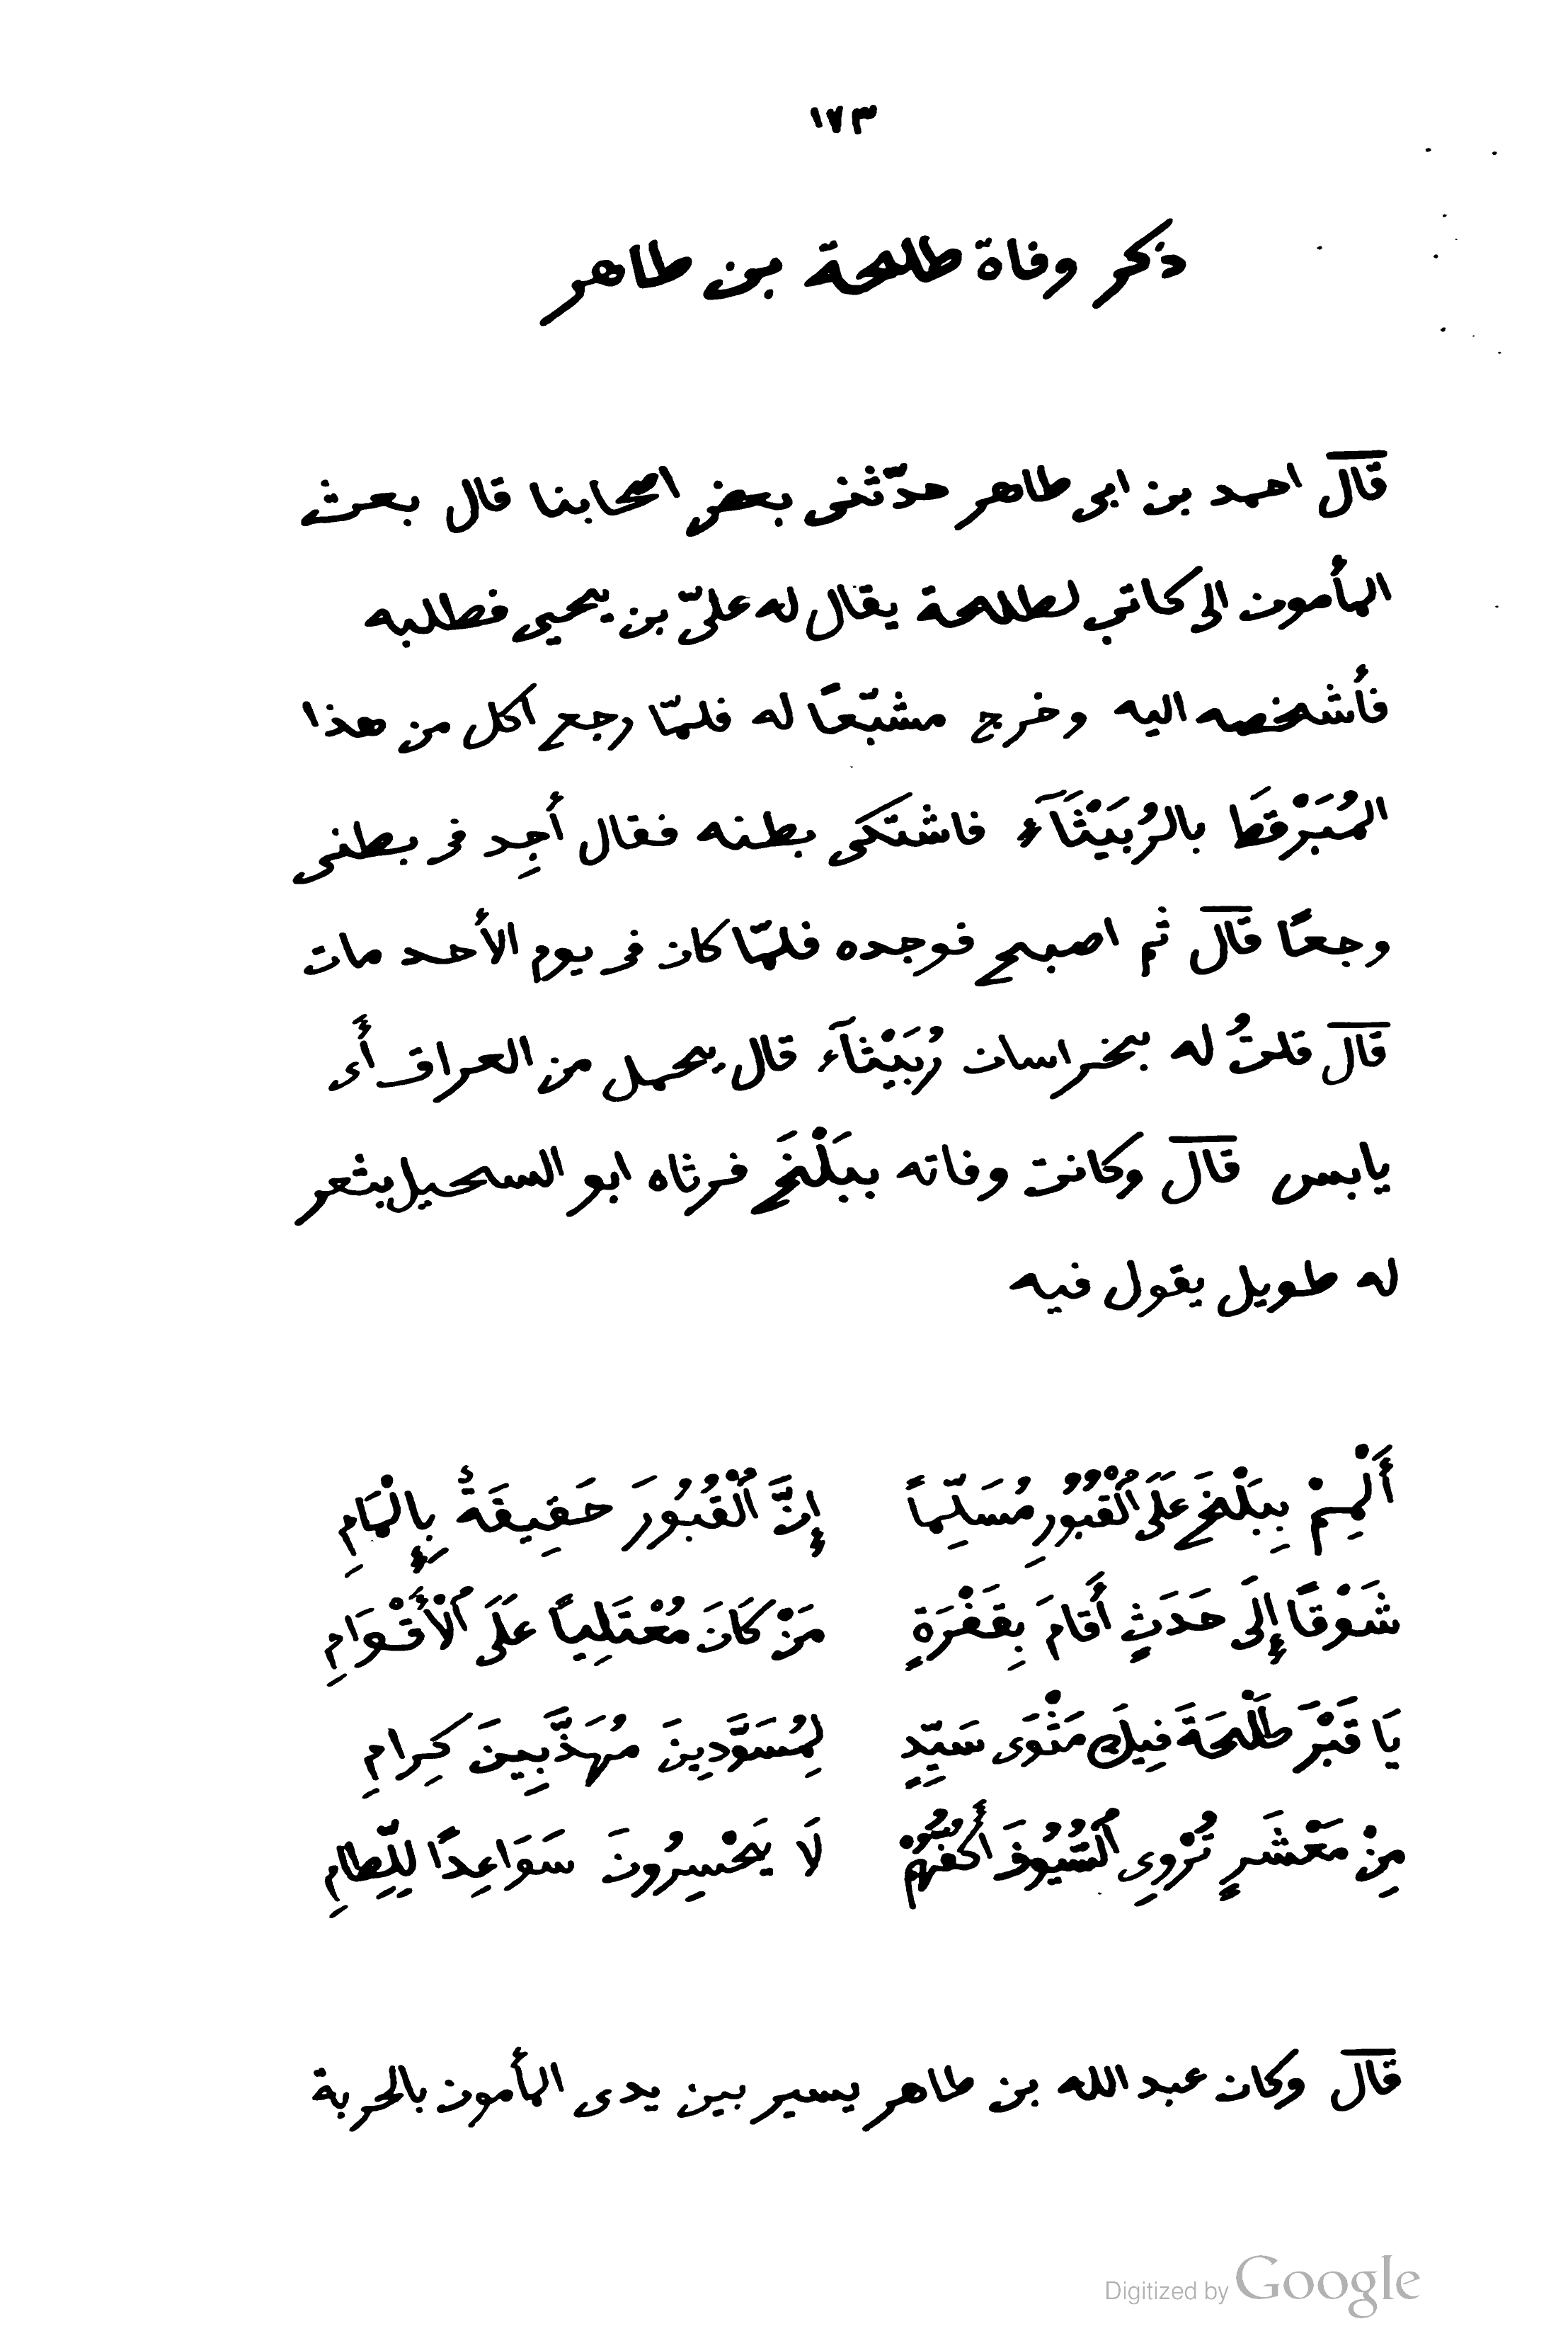 ١٧٣
ذكر وفاة طلحة بن طاهر
قال احمد بن ابى طاهر حدّثنى بعض اصحابنا قال بعث
المأمون الى كاتب لطلحة يقال له علىّ بن يحيى فطلبه
فأشخصه اليه وخرج مشيّعًا له فلمّا رجع اكل من هذا
المُبَرْقطَا بالرُبَيْثَآء فاشتكى بطنه فقال أجِد فى بطنى
وجعًا قال ثم اصبح فوجده فلمّا كان فى يوم الأحد مات
قال قلتُ له بخراسان رُبَيْثآء قال يحمل من العراق أى
يابس قال وكانت وفاته ببَلْخَ فرثاه ابو السحيل بشعر
له طويل يقول فيه
أَلْمِمْ بِبَلْخَ عَلَى ٱلْقُبُورِ مُسَلِّماً إِنَّ ٱلْقُبُورَ حَقِيقَةٌ بِإِلْمَامِ
شَوْقًا إِلَى حَدَثٍ أَقامَ بِقَفْرَةٍ مَنْ كَانَ مُعْتَلِياً عَلَى ٱلْأَقْوَامِ
يَا قَبْرَ طَلْحَةَ فِيكَ مَثْوَى سَيِّدٍ لِمُسَوَّدِينَ مُهَذَّبِينَ كِرامِ
مِنْ مَعْشَرٍ تُرْوِى ٱلسُّيُوفَ أَكُفُّهُمْ لَا يَحْسِرُونَ سَوَاعِدًا لِلِّطامِ
قال وكان عبد الله بن طاهر يسير بين يدى المأمون بالحربة
Digitized by Google